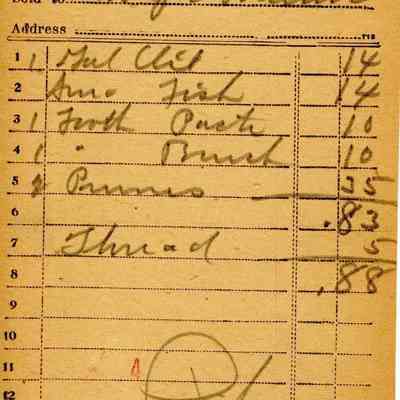 Sold to
Address
1 1 14
2 Fish 14
3 1 Tooth Paste 10
4 1 " Brush 10
5 2 Prunes 35
6 .83
7 Thread 5
8 .88
9
10
11 4
12